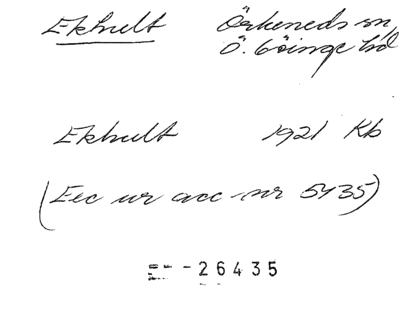 Ekhult Örkeneds sn
Ö. Göinge hd
Ekhult 1921 Kb
(Exc ur acc-nr 5435)
26435